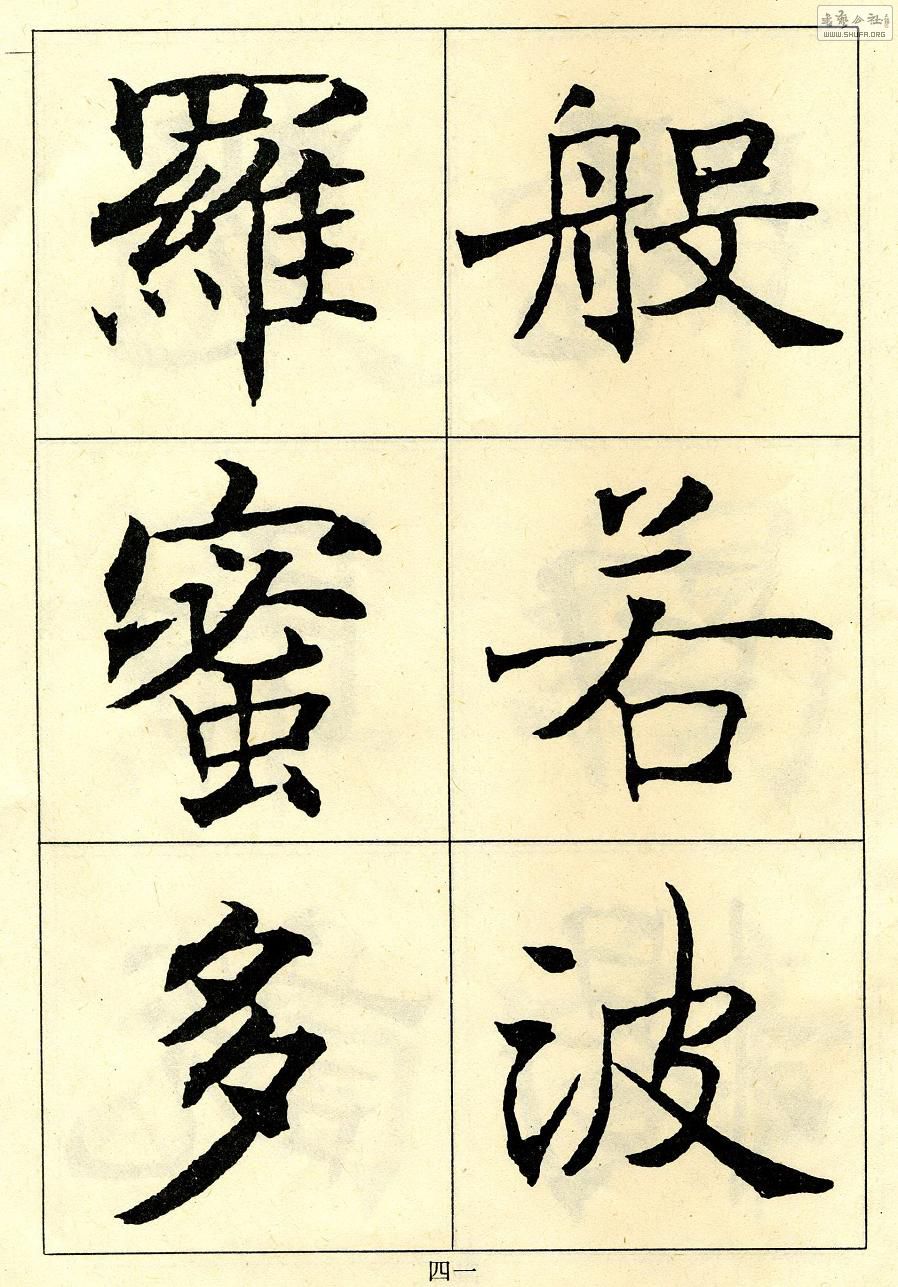 般若波
羅蜜多
四一
WWW.SHUFA.ORG